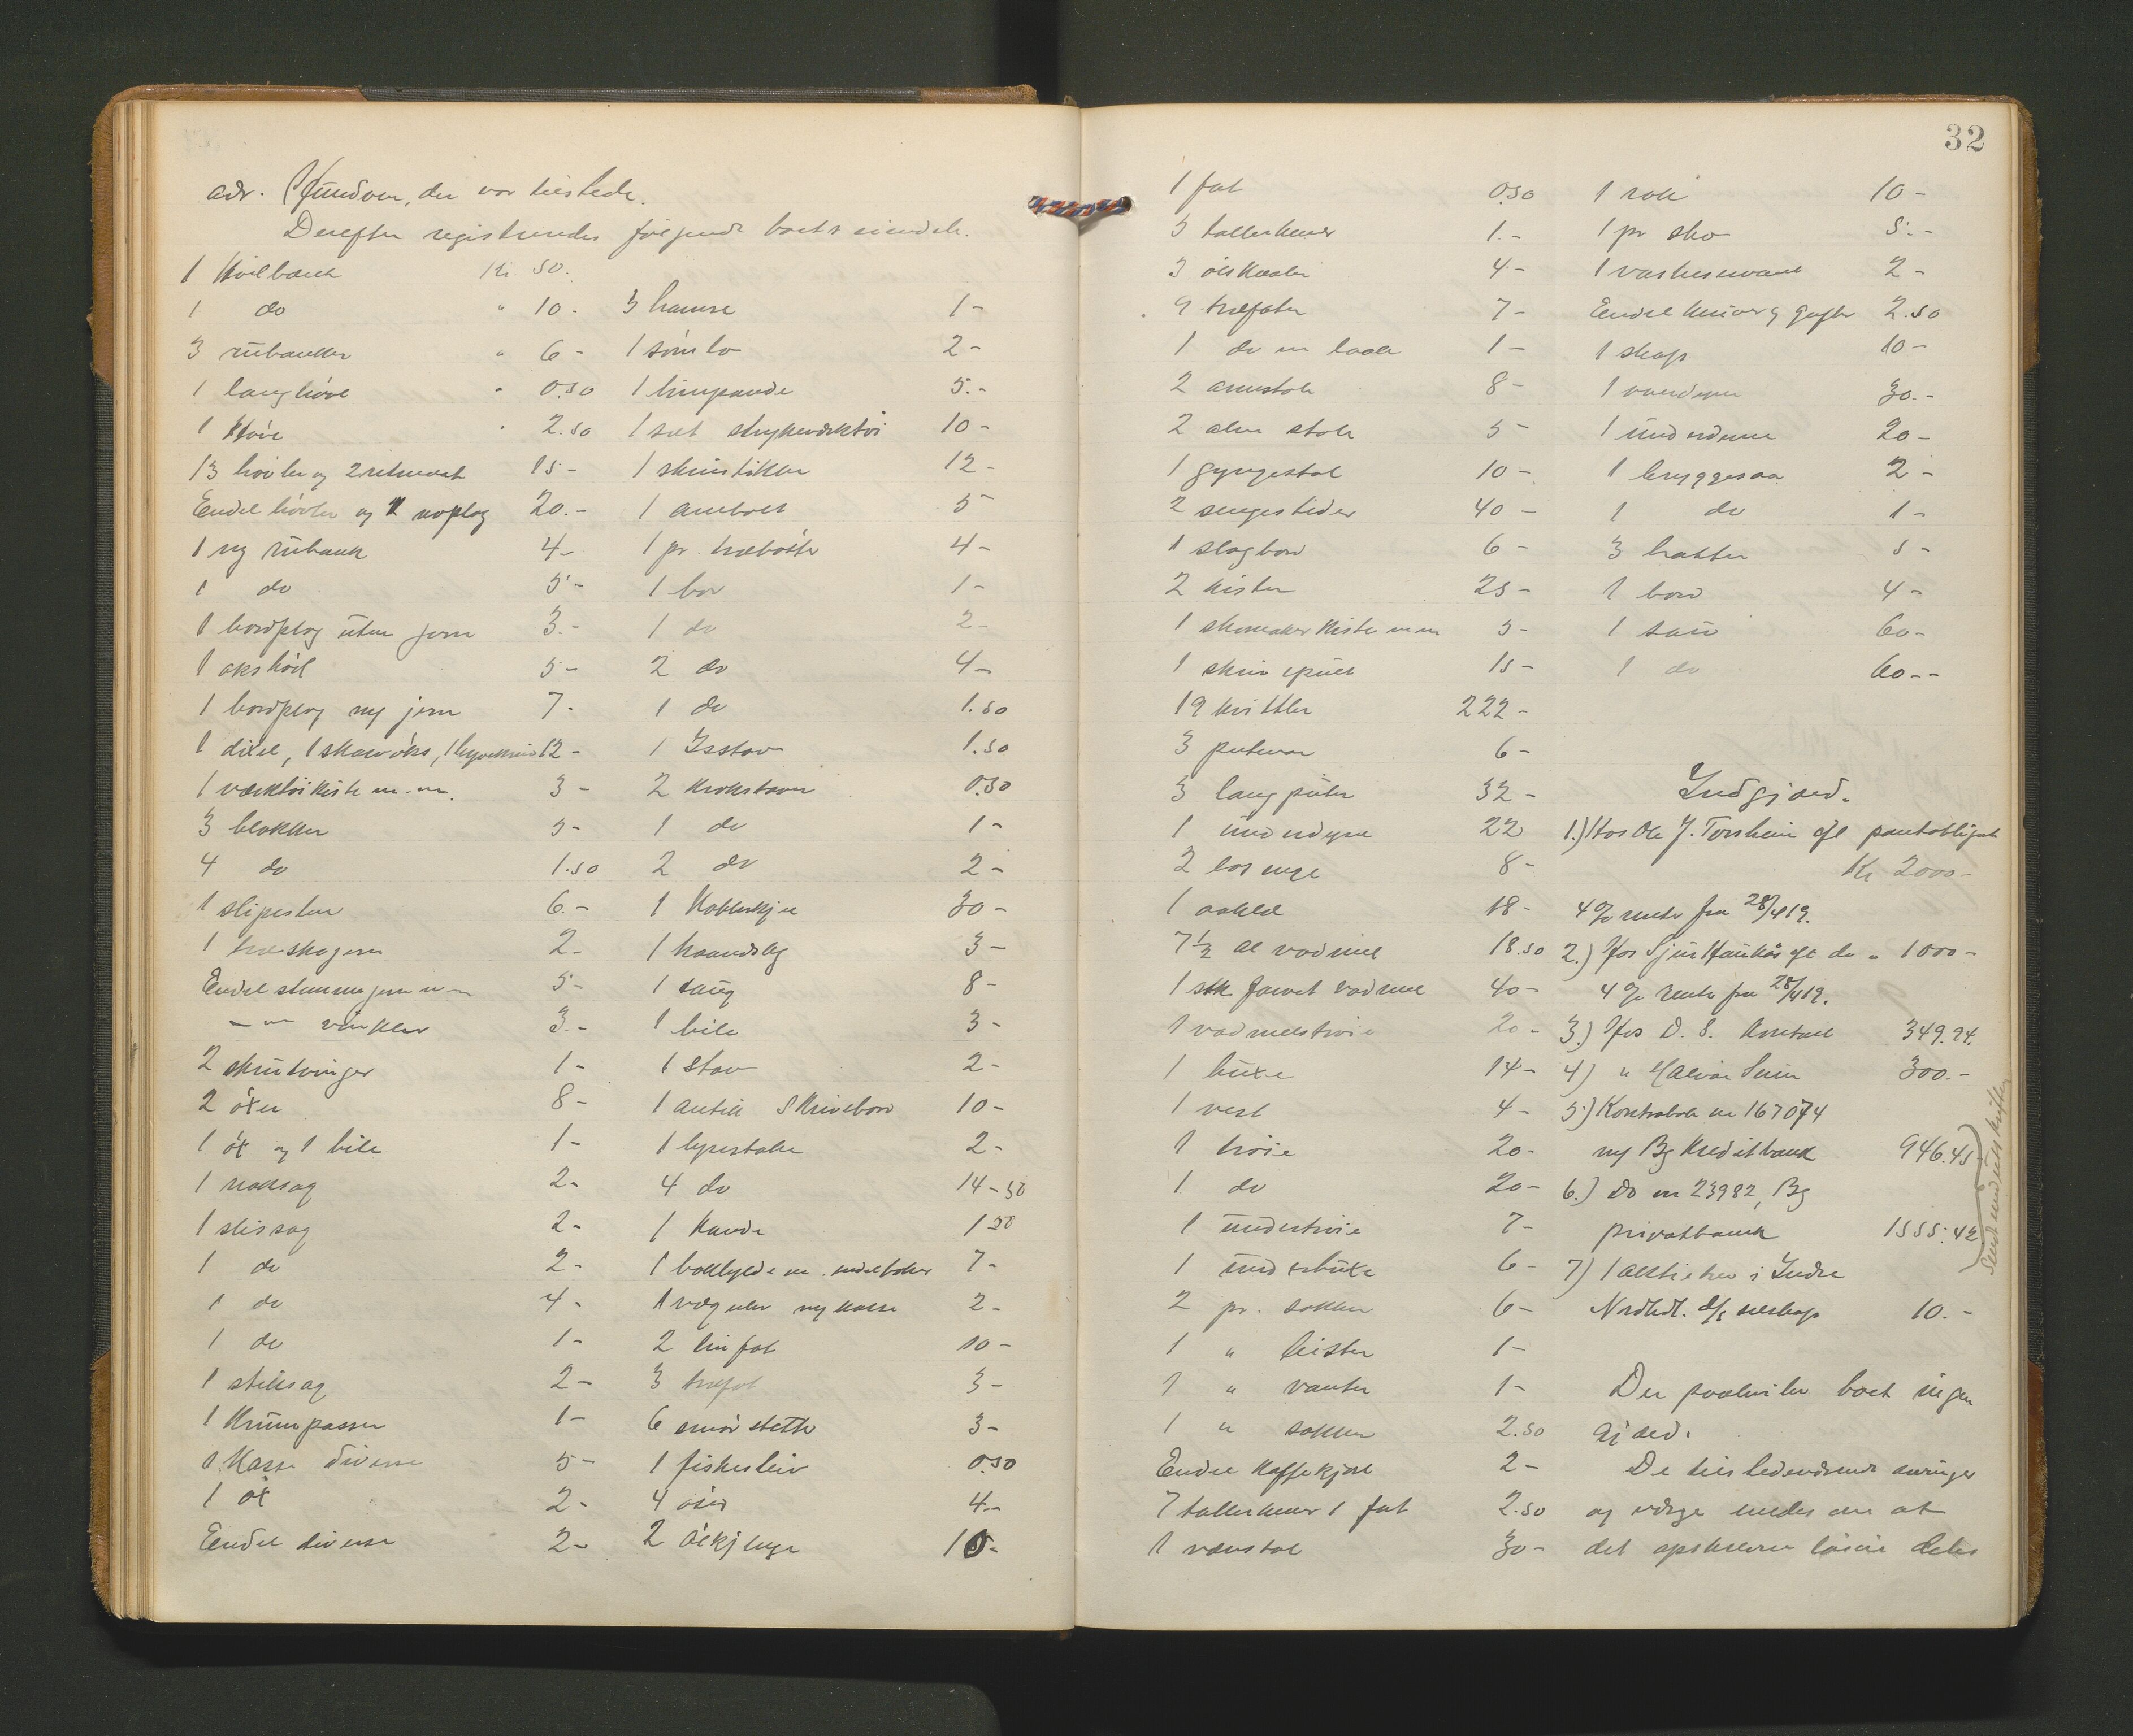 adr. Hundven, der var tilstede.
Derefter registrertes følgende boets eiendele.
1 Hövlbænk Kr. 50.
1 do " 10.-
3 rubanker " 6-
1 langhövl " 0.50
1 Hövl " 2.50
13 hövler og 2 retmaat 15-
Endel hövler og 1 noplog 20.-
1 ny rubank 4-
1 do 5-
1 bordplog uten jern 3.-
1 okshövl 5-
1 bordplog m/ jern 7-
1 dixel, 1 skarvöks, 12-
1 værktöikiste m.m. 3-
3 blokker 5-
4 do 1.50
1 slipesten 6.-
1 træskojern 2-
Endel stemmejern m.m 5-
-"- vinkler 3.-
2 skrutvinger 1-
2 öxer 8-
1 öx og 1 bile 1-
1 naksag 2-
1 slissag 2-
1 do 2-
1 do 4-
1 do 1-
1 stiksag 2-
1 Krumpasser 1-
1 Kasse diverse 5-
1 öx 2-
Endel diverse 2-
3 hamre 1-
1 sömlo 2-
1 limpande 5.-
1 sæt strykeværktöi 10-
1 skrustikke 12-
1 ambolt 5
1 pr. træbötter 4-
1 bor 1-
1 do 2-
2 do 4-
1 do 1.50
1 Isstav 1.50
2 Krokstaver 0.50
1 do 1-
2 do 2-
1 Kobberkjel 30-
1 haandsag 3-
1 taug 8-
1 bile 3-
1 stav 2-
1 antik Skrivebord 10-
1 lysestake 2-
4 do 14-50
1 Kande 1 50
1 bokhylde m. endel bøker 7-
1 væguhr m/ kasse 2-
2 tinfat 10-
3 træfat 3-
6 smör stetter 3-
1 fiskesleiv 0.50
4 öser 4.-
2 ölkjenge 10-
32
1 fat 0.50
5 tallerkener 1.-
3 ölskaaler 4-
9 træfater 7-
1 do m laak 1-
2 armstole 8-
2 alm stole 5-
1 gyngestol 10-
2 sengesteder 40-
1 slagbord 6-
2 kister 25-
1 skomakerkiste m.m 5-
1 skrivepult 15-
19 kvittler 222-
3 putevar 6-
3 langputer 32-
1 underdyne 22
2 8-
1 aaklæ 18-
7½ al vadmel 18.50
1 stk farvet vadmel 40-
1 vadmelströie 20-
1 buxe 14-
1 vest 4-
1 tröie 20-
1 do 20-
1 undertröie 7-
1 underbuxe 6-
2 pr. sokker 6-
1 " leister 1-
1 " vanter 1-
1 " sokker 2.50
Endel Kaffekjørel 2-
7 tallerkener 1 fat 2.50
1 vævstol 30-
1 rok 10-
1 pr sko 5.-
1 vaskeservant 2-
Endel kniver og gafler 2.50
1 skap 10-
1 overdyne 30.-
1 underdyne 20-
1 bryggesaa 2-
1 do 1-
3 hatter 5-
1 bord 4-
1 sau 60-
1 do 60--
Indgjæld.
1.) Hos Ole J. Torsheim ifl pantobligat
Kr 2000-
4 % rente fra 28/4 19.
2.) Hos Sjur Haukås ifl do " 1000-
4 % rente fra 28/4 19.
3.) Hos D. S. 349.94.
4) " Halvor Seim 300.-
5) Kontrabok nr 167074
m/ Bg Kreditbank 946.45
6.) Do nr 23982, Bg
privatbank 1555.42
7) 1 aktiebrev i Indre
Nordhdl. d/s selskap 10.-
Der paahviler boet ingen
gjæld.
De tilstedeværende arvinger
og værge enedes om at
det opskrevne løsøre deles